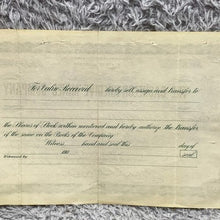 For Value Received hereby sell, assign and Transfer to
the Shares of Stock within mentioned and hereby authorize the Transfer
of the same on the Books of the Company
Witness hand and seal this day of
191
seal
Witnessed by